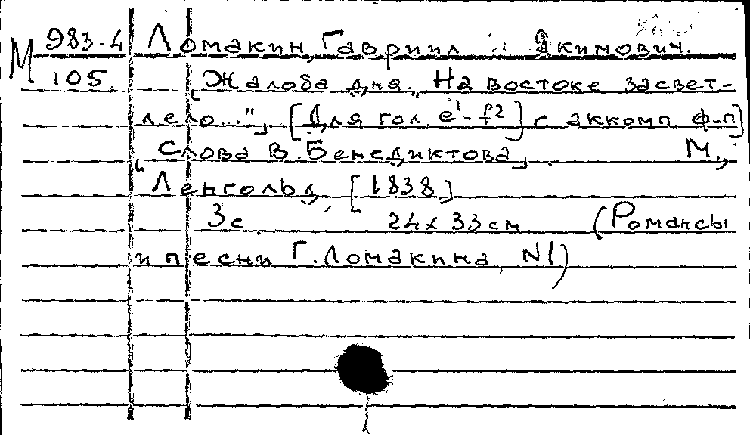 М 983-4 Ломакин, Гавриил Якимович.
105. Жалоба дня. „На востоке засвет-
лело..." [Для гол. e¹-f² с аккомп. ф-п]
Слова В. Бенедиктова. М.,
Ленгольд, [1838]
3 с. 24x33 см (Романсы
и песни Г. Ломакина, N1)